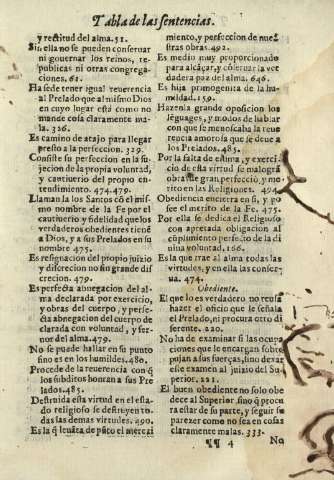 Tabla de las sentencias.
y rectitud del alma. 51.
Sin ella no se pueden conseruar
ni gouernar los reinos, re-
publicas ni otras congrega-
ciones. 61.
Ha se de tener igual reuerencia
al Prelado que al mismo Dios
en cuyo lugar está como no
mande cosa claramente ma-
la. 326.
Es camino de atajo para llegar
presto a la perfeccion. 329.
Consiste su perfeccion en la su-
jecion de la propia voluntad,
y cautiuerio del propio en-
tendimiento. 474. 479.
Llaman la los Santos cõ el mis-
mo nombre de la Fe por el
cautiuerio y fidelidad que los
verdaderos obedientes tienẽ
a Dios, y a sus Prelados en su
nombre 475.
Es resignacion del propio juizio
y discrecion no sin grande dis
crecion. 479.
Es perfecta abnegacion del al-
ma declarada por exercicio,
y obras del cuerpo, y perfe-
cta abnegacion del cuerpo de
clarada con voluntad, y fer-
uor del alma. 479.
No se puede hallar en su punto
sino es en los humildes. 480.
Procede de la reuerencia con q̃
los subditos honran a sus Pre
lados. 485.
Destruida esta virtud en el esta-
do religioso se destruyen to-
das las demas virtudes. 490.
Es la q̃ leuãta de pũto el mereci
miento, y perfeccion de nue-
stras obras. 492.
Es medio muy proporcionado
para alcãçar, y cõseruar la ver
dadera paz del alma. 646.
Es hija primogenita de la hu-
mildad. 159.
Hazenla grande oposicion los
leguages, y modos de hablar
con que se menoscaba la reue
rencia amorosa que se deue a
los Prelados. 485.
Por la falta de estima, y exerci-
cio de esta virtud se malogra
obras de gran perfecciõ, y me-
rito en las Religiones. 494
Obediencia encierra en si, y po
see el merito de la Fe. 475.
Por ella se dedica el Religioso
con apretada obligacion al
cũplimiento perfecto de la di-
uina voluntad. 166.
Es la que trae al alma todas las
virtudes, y en ella las conser-
ua. 474.
Obediente.
El que lo es verdadero no reusa
hazer el oficio que le señala
el Prelado, ni procura otro di
ferente. 220.
No ha de examinar si las ocupa
ciones que le encargan sobre
pujan a sus fuerças, sino dexar
esse examen al juizio del Su-
perior. 221.
El buen obediente no solo obe
dece al Superior sino q̃ procu
ra estar de su parte, y seguir su
parezer como no sea en cosas
claramente malas. 333.
¶¶ 4 No